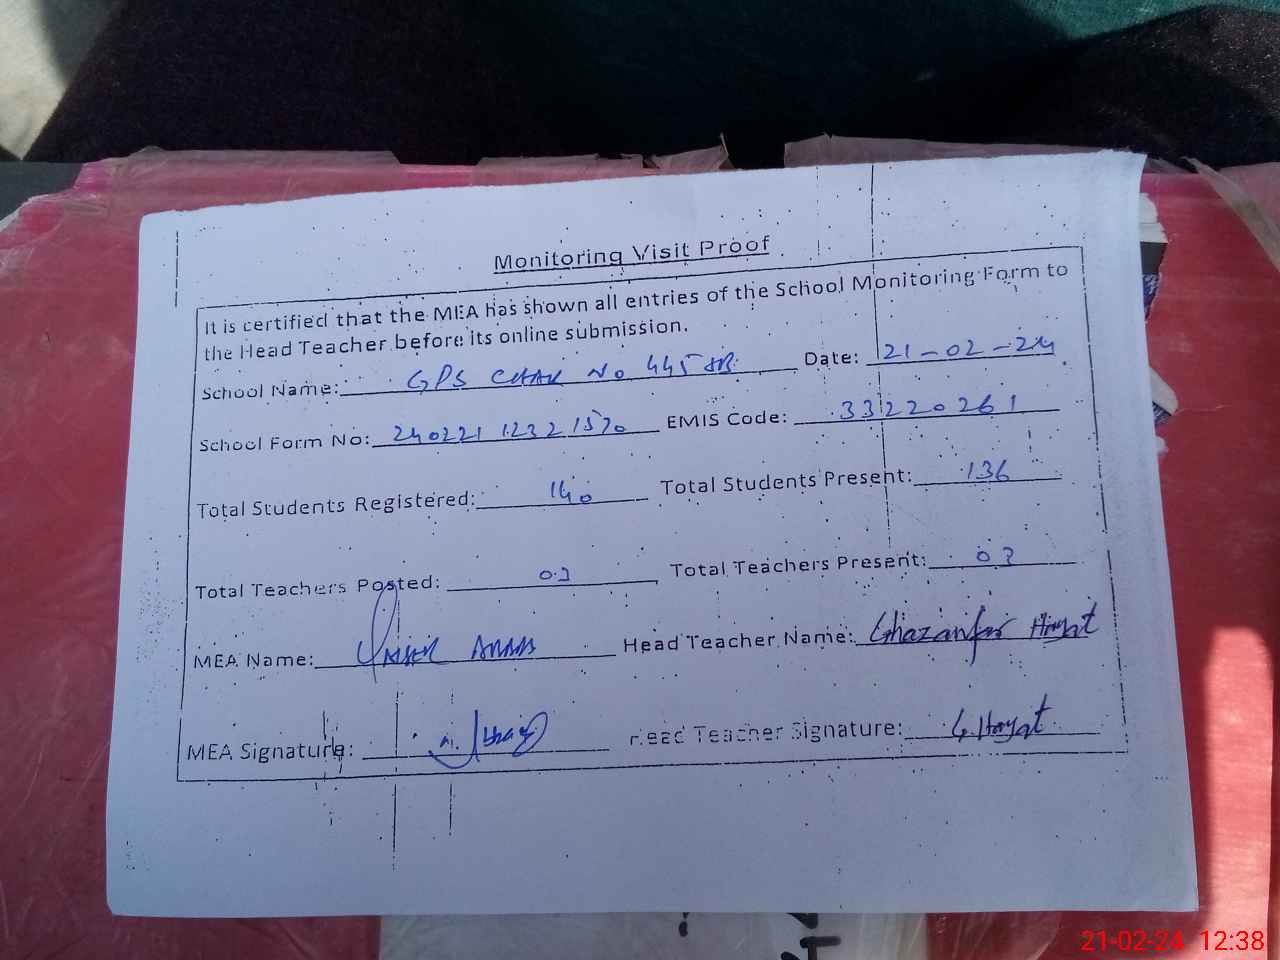 Monitoring Visit Proof
It is certified that the MEA has shown all entries of the School Monitoring Form to
the Head Teacher before its online submission.
School Name: GPS CHAK No 445 JB. Date: 21-02-24
School Form No: 240221 1232 1570 EMIS Code: 33220261
Total Students Registered: 140 Total Students Present: 136
Total Teachers Posted: 03 Total Teachers Present: 03
MEA Name: Head Teacher Name: Ghazanfar Hayat
MEA Signature: Head Teacher Signature: G. Hayat
21-02-24 12:38